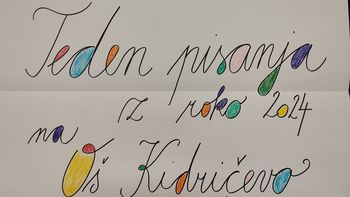 Teden pisanja
z roko 2024
na
Oš Kidričevo